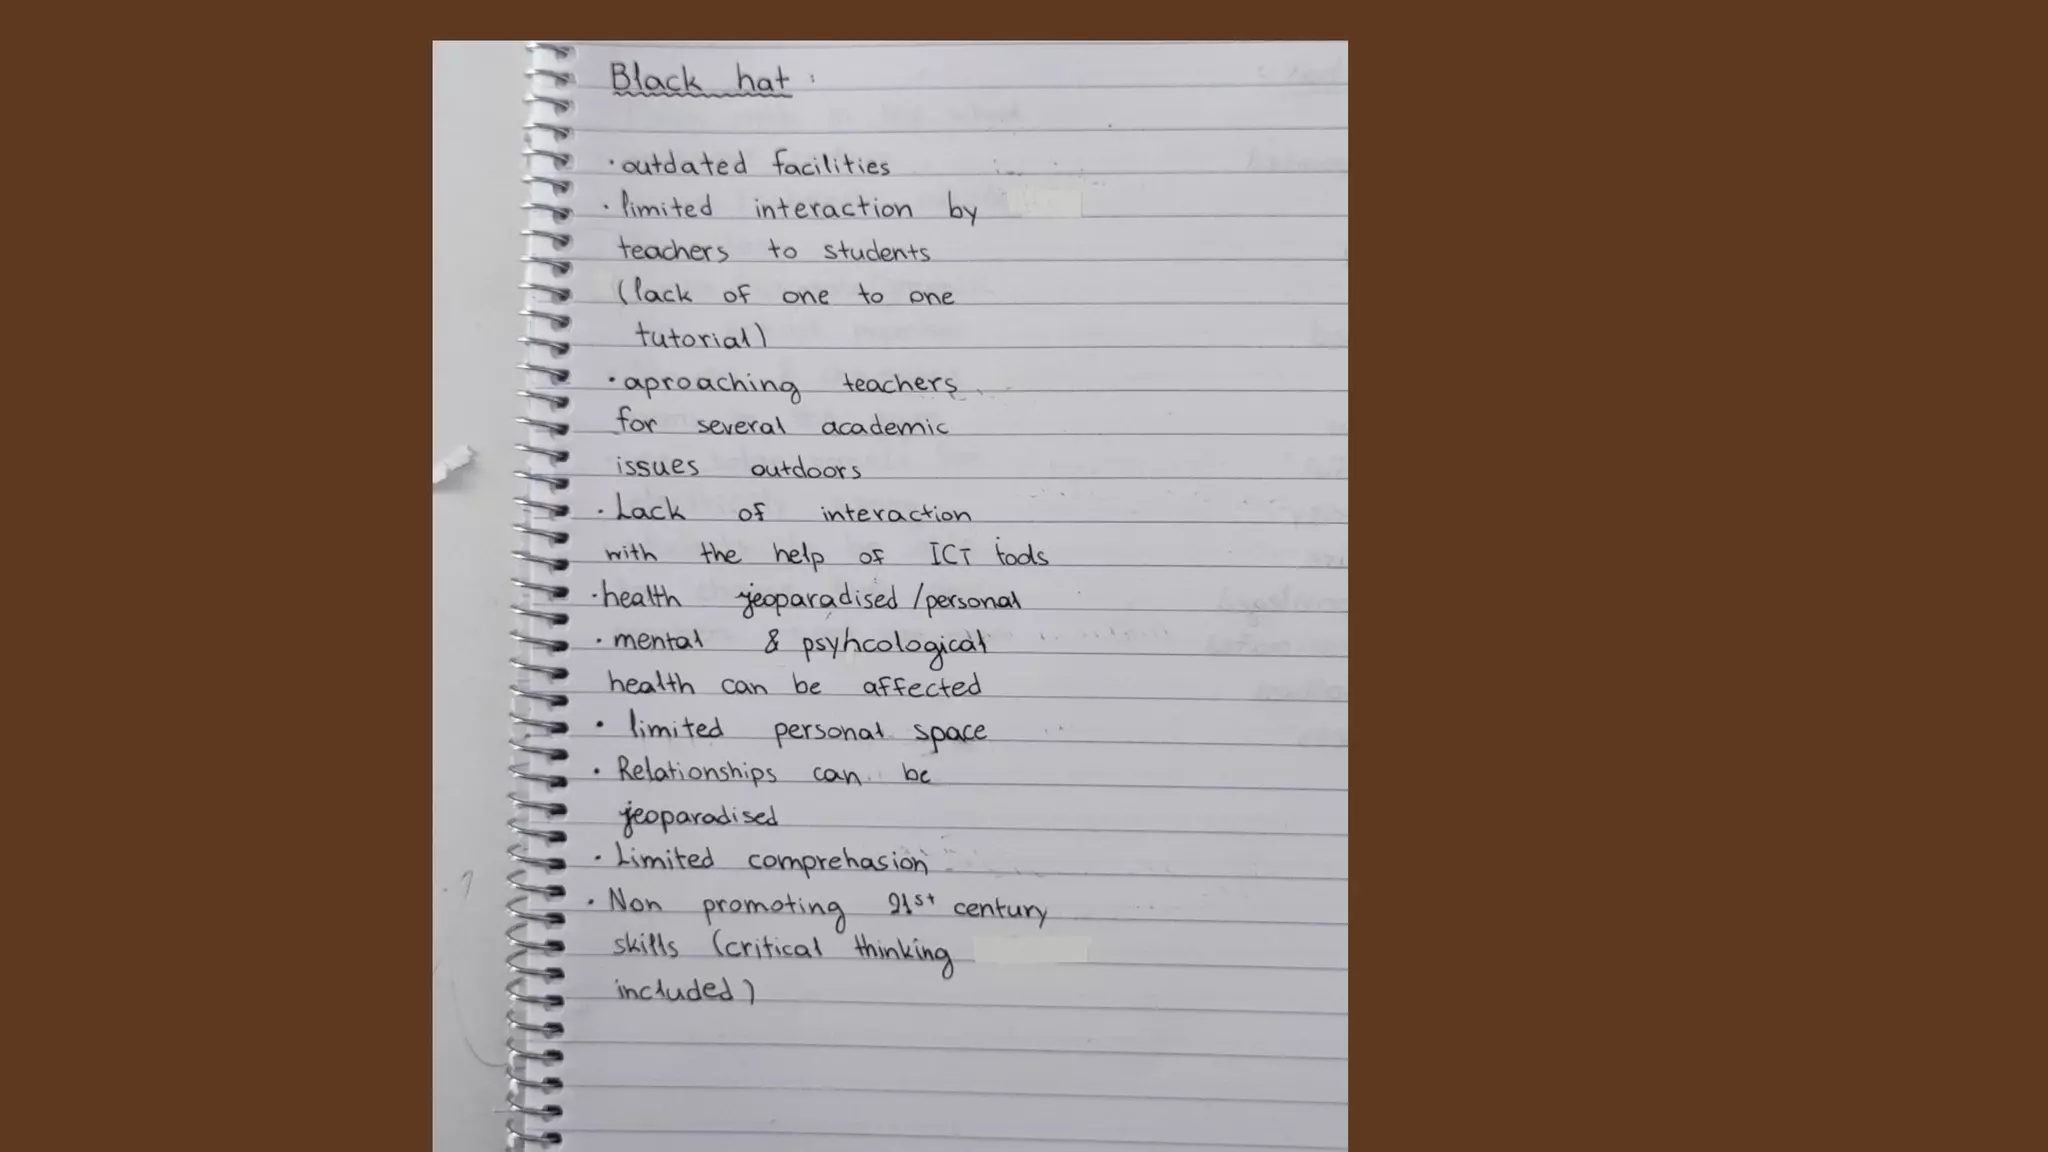 Black hat :
· outdated facilities
· limited interaction by
teachers to students
(lack of one to one
tutorial)
· aproaching teachers
for several academic
issues outdoors
· Lack of interaction
with the help of ICT tools
· health jeoparadised / personal
· mental & psyhcological
health can be affected
· limited personal space
· Relationships can be
jeoparadised
· Limited comprehasion
· Non promoting 21st century
skills (critical thinking
included)